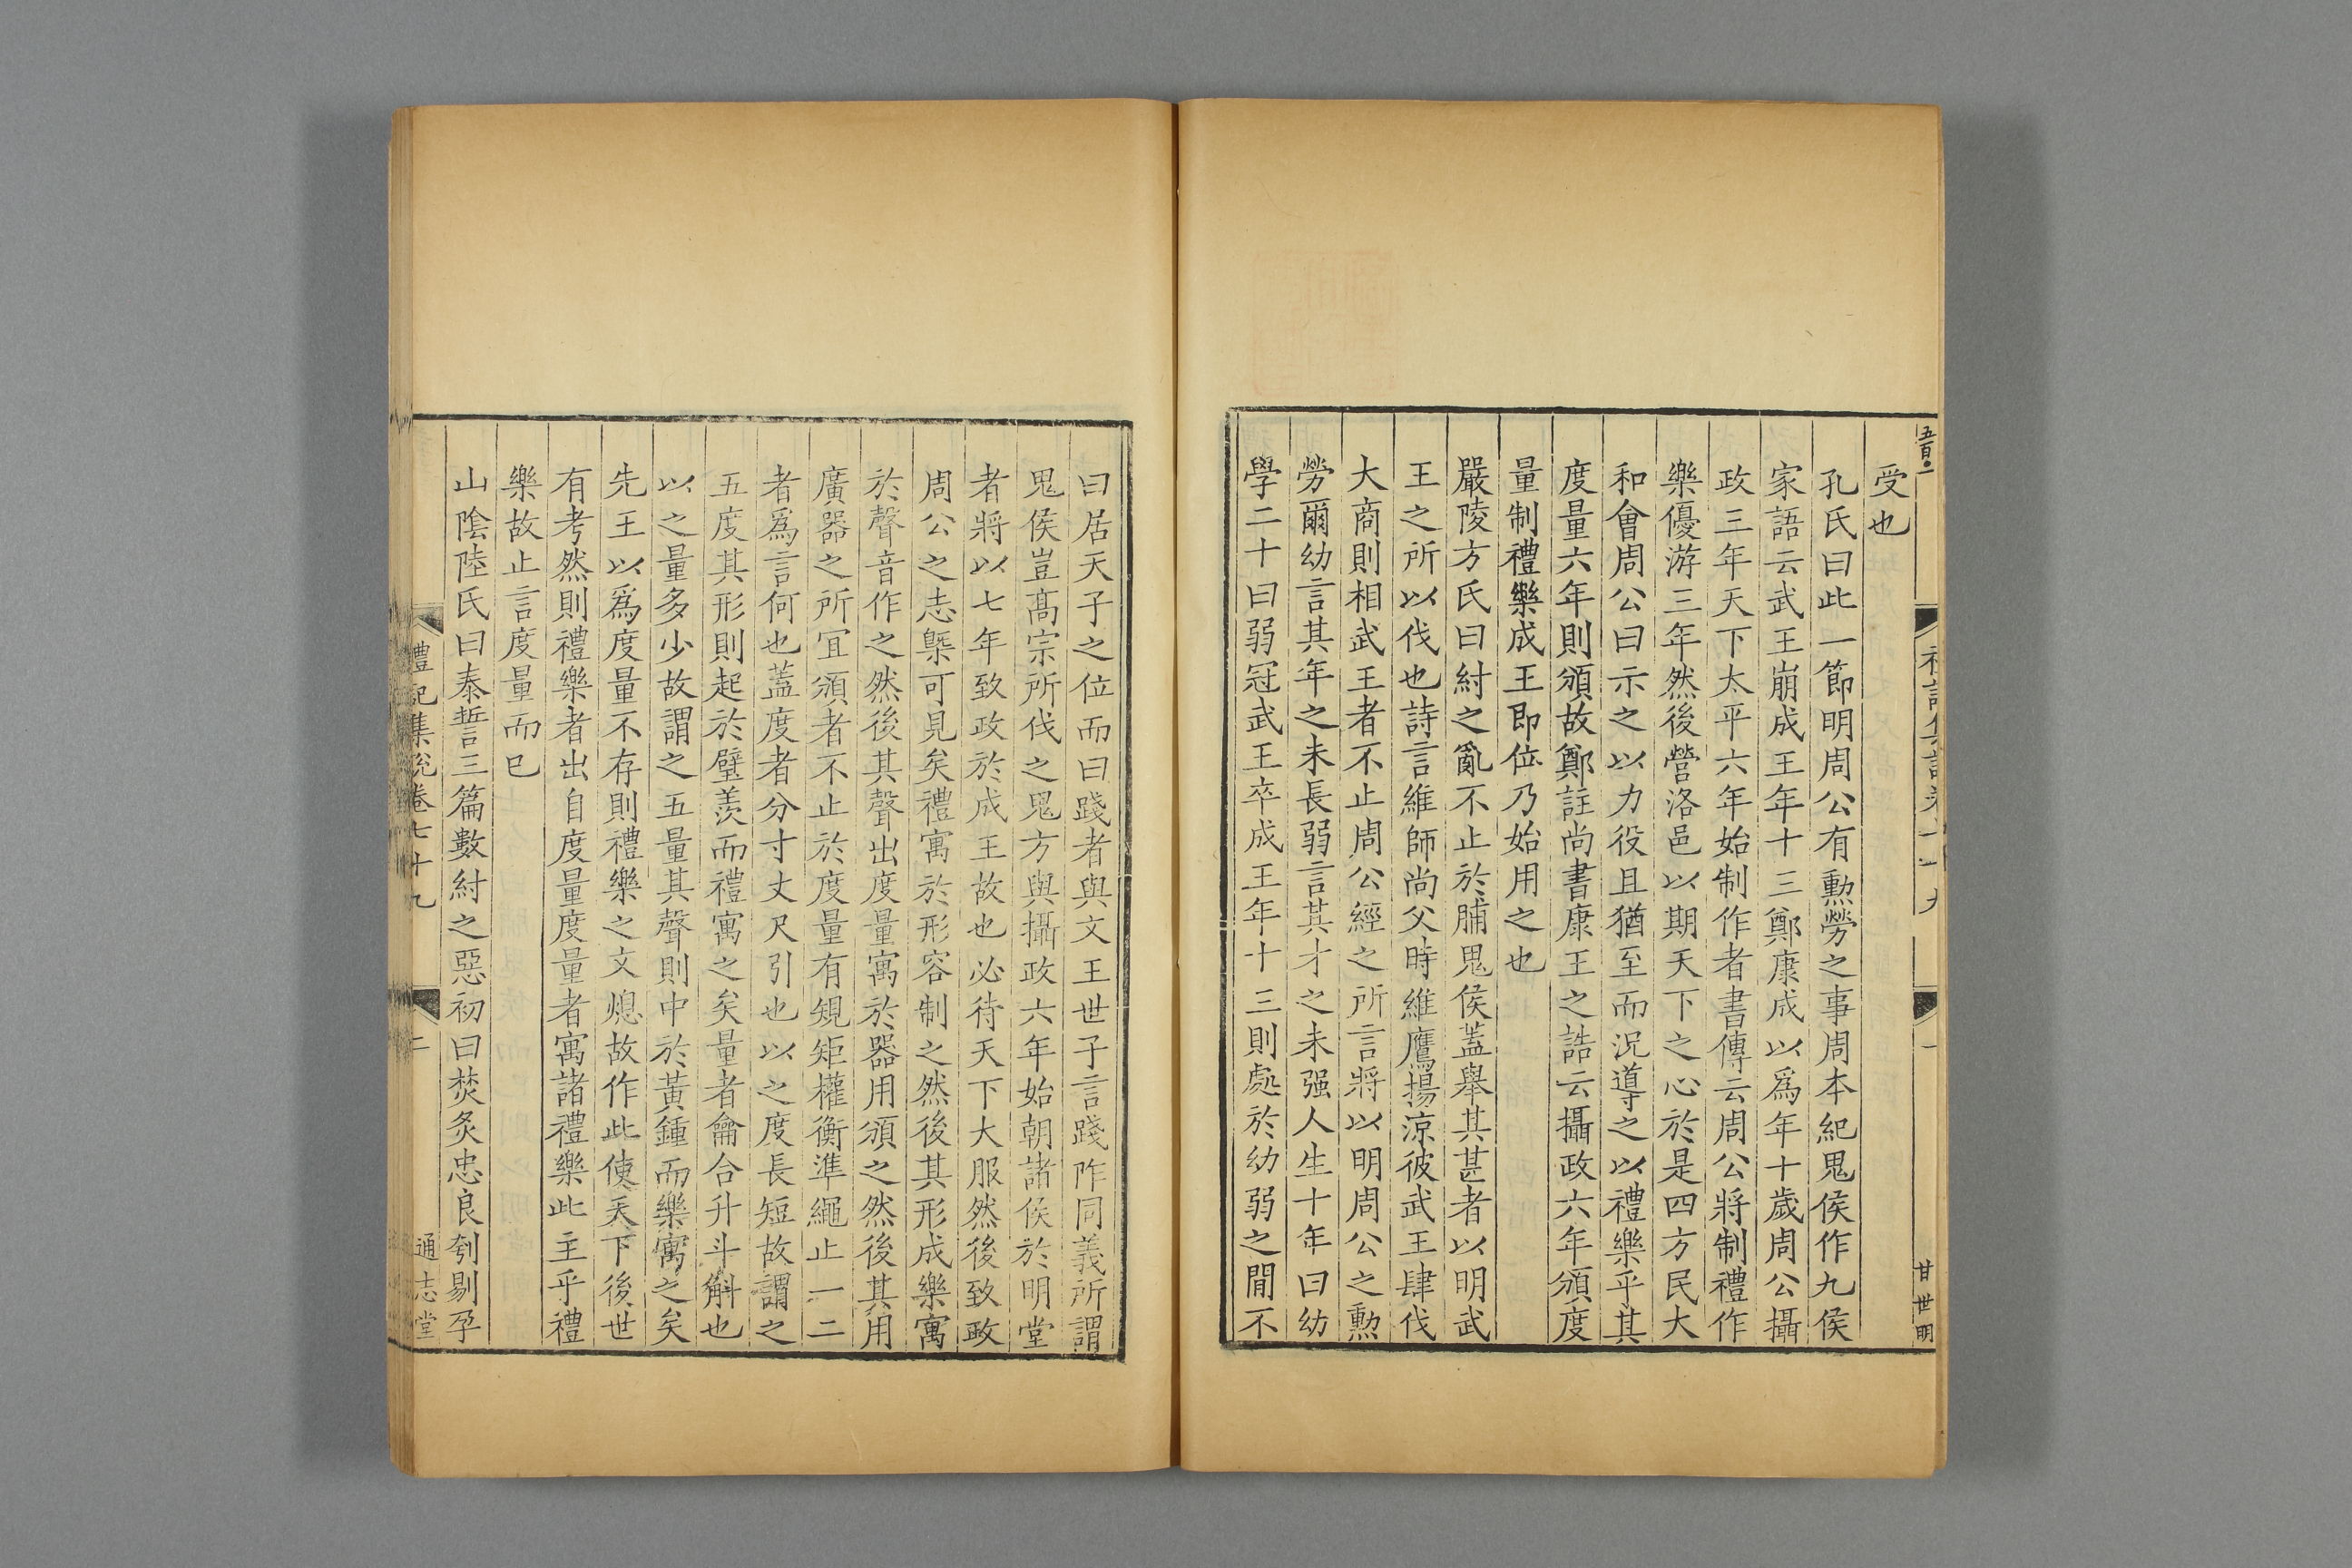 受也
孔氏曰此一節明周公有勲勞之事周本紀鬼侯作九侯
家語云武王崩成王年十三鄭康成以爲年十歲周公攝
政三年天下太平六年始制作者書傳云周公將制禮作
樂優游三年然後營洛邑以期天下之心於是四方民大
和會周公曰示之以力役且猶至而況導之以禮樂乎其
度量六年則頒故鄭註尚書康王之誥云攝政六年頒度
量制禮樂成王即位乃始用之也
嚴陵方氏曰紂之亂不止於脯鬼侯蓋舉其甚者以明武
王之所以伐也詩言維師尚父時維鷹揚涼彼武王肆伐
大商則相武王者不止周公經之所言將以明周公之勲
勞爾幼言其年之未長弱言其才之未强人生十年曰幼
學二十曰弱冠武王卒成王年十三則處於幼弱之閒不
甘世明
曰居天子之位而曰踐者與文王世子言踐阼同義所謂
鬼侯豈髙宗所伐之鬼方與攝政六年始朝諸侯於明堂
者將以七年致政於成王故也必待天下大服然後致政
周公之志槩可見矣禮寓於形容制之然後其形成樂寓
於聲音作之然後其聲出度量寓於器用頒之然後其用
廣器之所冝頒者不止於度量有規矩權衡準繩止一二
者爲言何也蓋度者分寸丈尺引也以之度長短故謂之
五度其形則起於璧羨而禮寓之矣量者龠合升斗斛也
以之量多少故謂之五量其聲則中於黃鍾而樂寓之矣
先王以爲度量不存則禮樂之文熄故作此使天下後世
有考然則禮樂者出自度量度量者寓諸禮樂此主乎禮
樂故止言度量而已
山隂陸氏曰泰誓三篇數紂之惡初曰焚炙忠良刳剔孕
禮記集說卷七十九 二 通志堂